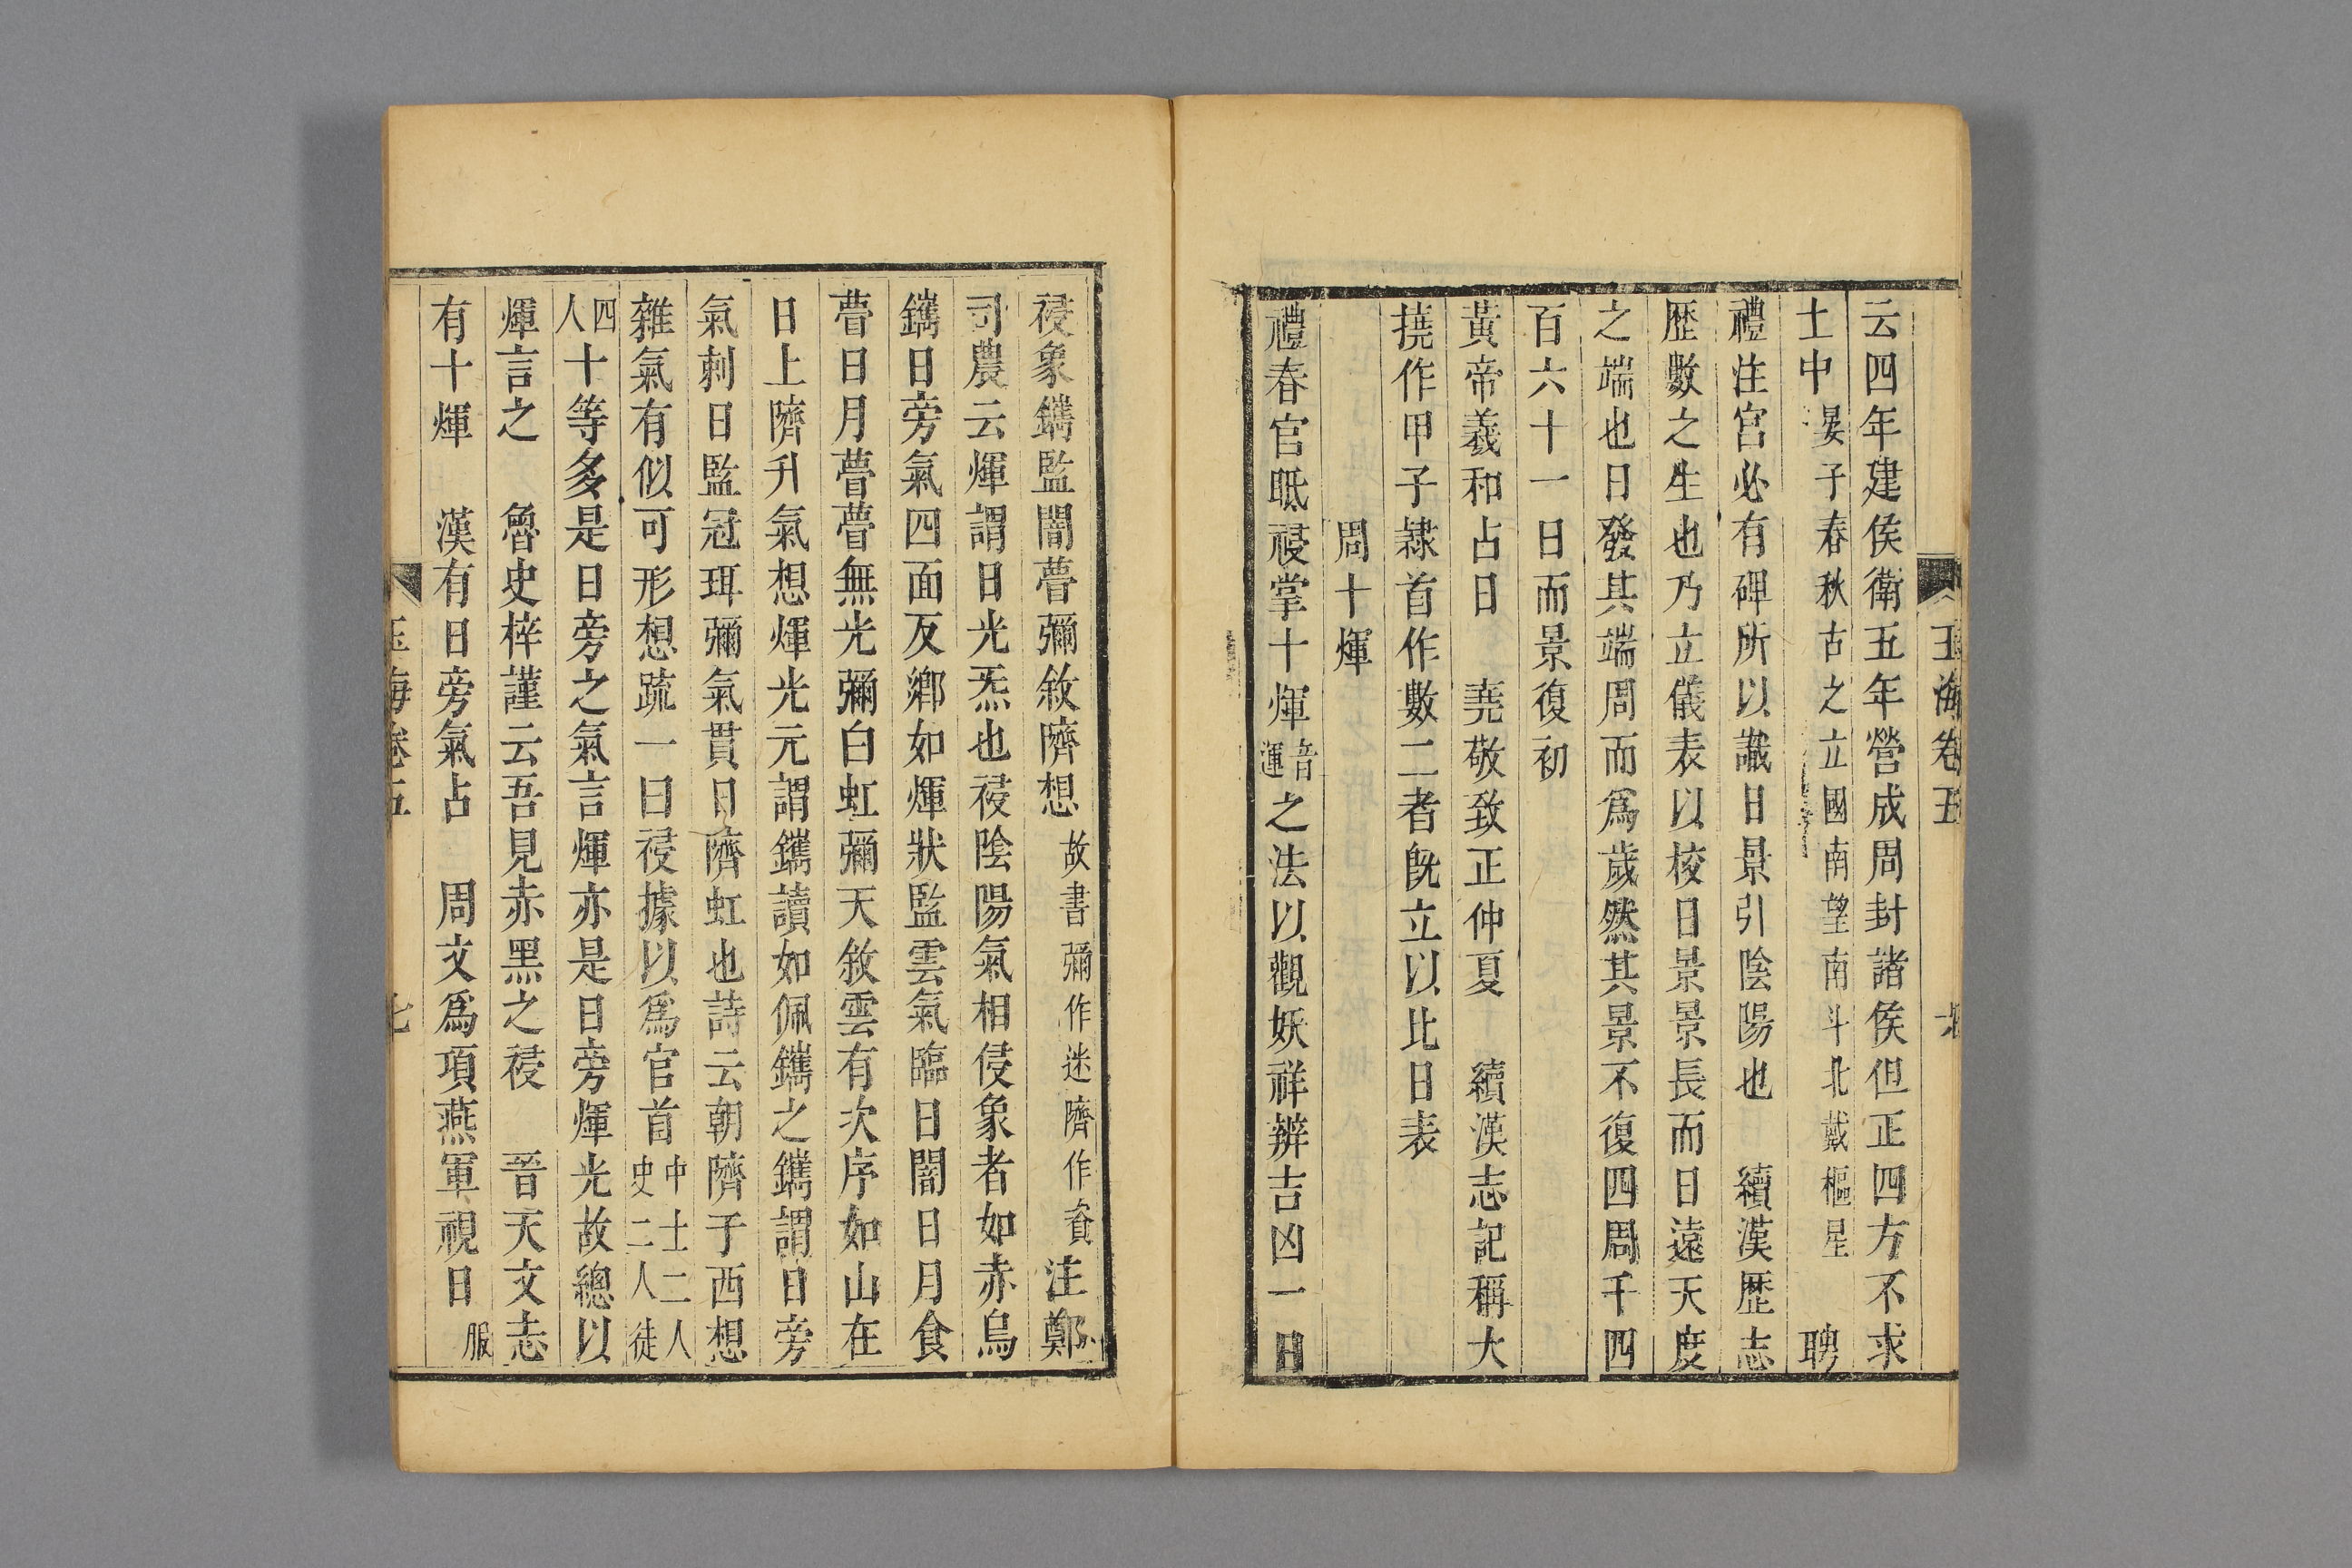 玉海卷五
云四年建侯衛五年營成周封諸侯但正四方不求
土中晏子春秋古之立國南望南斗北戴樞星 聘
禮注宮必有碑所以識日景引陰陽也 續漢歷志
歷數之生也乃立儀表以校日景景長而日遠天度
之端也日發其端周而爲歲然其景不復四周千四
百六十一日而景復初
黃帝羲和占日 堯敬致正仲夏 續漢志記稱大
撓作甲子隸首作數二者旣立以比日表
周十煇
禮春官眡祲掌十煇音運之法以觀妖祥辨吉凶一曰
祲象鑴監闇瞢彌敘隮想故書彌作迷隮作資注鄭
司農云煇謂日光炁也祲陰陽氣相侵象者如赤烏
鑴日旁氣四面反鄕如煇狀監雲氣臨日闇日月食
瞢日月瞢瞢無光彌白虹彌天敘雲有次序如山在
日上隮升氣想煇光元謂鑴讀如佩鑴之鑴謂日旁
氣刺日監冠珥彌氣貫日隮虹也詩云朝隮于西想
雜氣有似可形想疏一曰祲據以爲官首中士二人史二人徒
四人十等多是日旁之氣言煇亦是日旁煇光故總以
煇言之 魯史梓謹云吾見赤黑之祲 晉天文志
有十煇 漢有日旁氣占 周文爲項燕軍視日服
玉海卷五 七